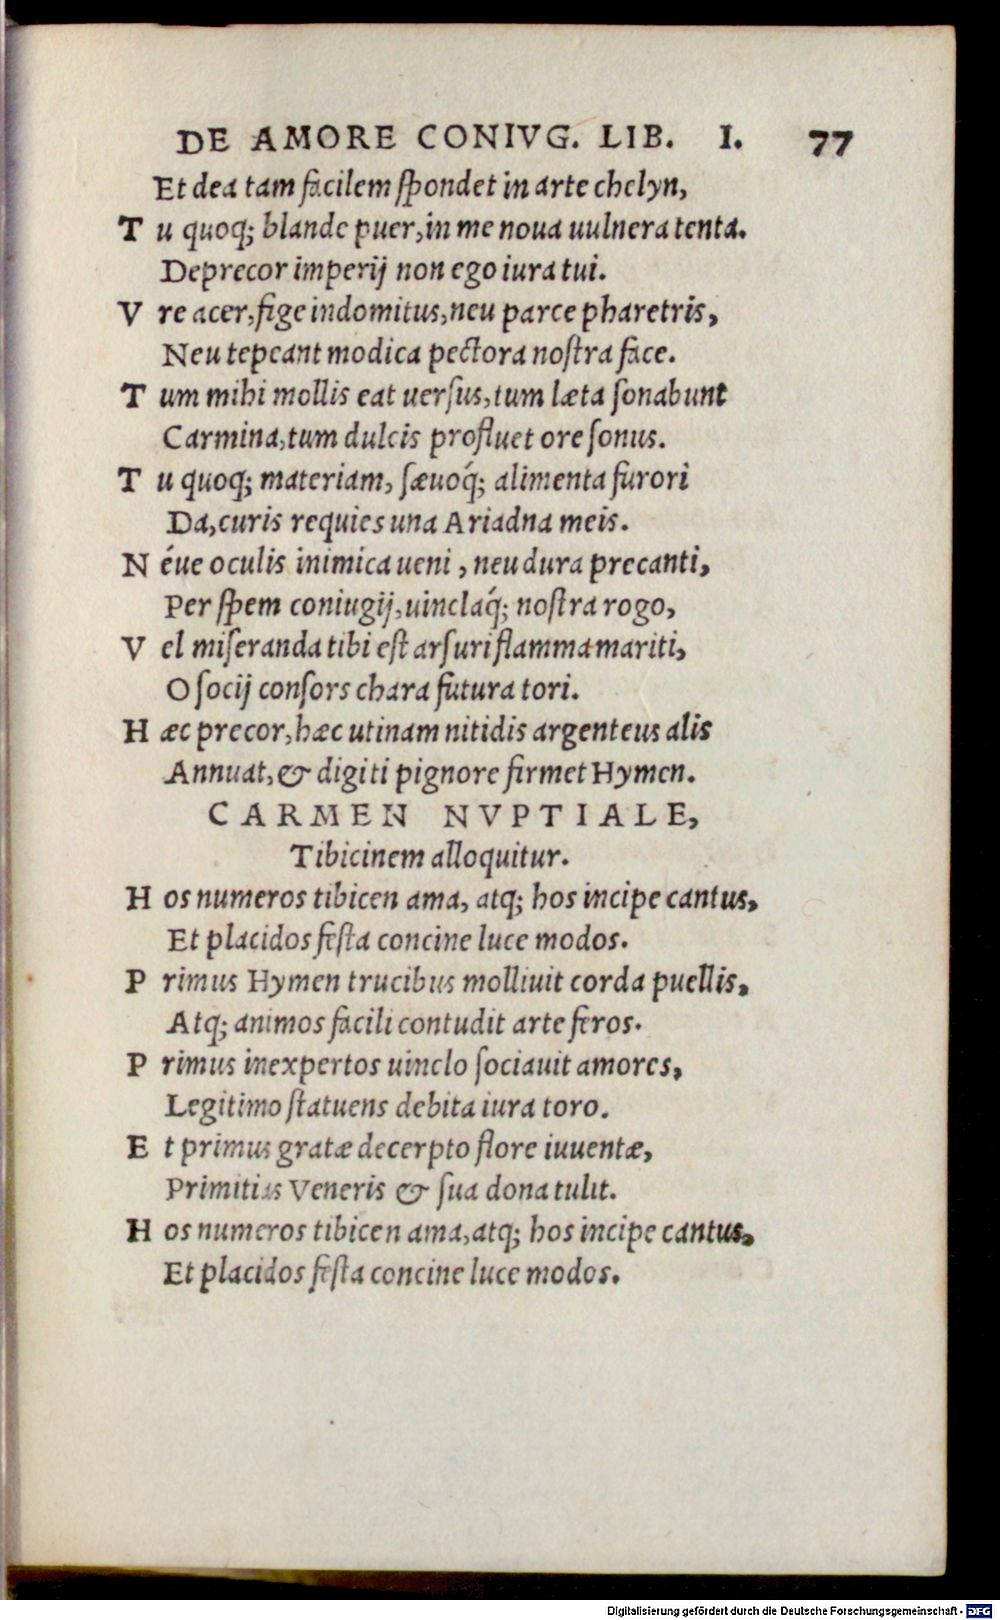 DE AMORE CONIVG. LIB. I. 77
Et dea tam facilem spondet in arte chelyn,
T u quoq; blande puer, in me noua uulnera tenta.
Deprecor imperij non ego iura tui.
V re acer, fige indomitus, neu parce pharetris,
Neu tepeant modica pectora nostra face.
T um mihi mollis eat uersus, tum læta sonabunt
Carmina, tum dulcis profluet ore sonus.
T u quoq; materiam, sæuoq́; alimenta furori
Da, curis requies una Ariadna meis.
N éue oculis inimica ueni, neu dura precanti,
Per spem coniugij, uinclaq́; nostra rogo,
V el miseranda tibi est arsuri flamma mariti,
O socij consors chara futura tori.
H æc precor, hæc utinam nitidis argenteus alis
Annuat, & digiti pignore firmet Hymen.
CARMEN NVPTIALE,
Tibicinem alloquitur.
H os numeros tibicen ama, atq; hos incipe cantus,
Et placidos festa concine luce modos.
P rimus Hymen trucibus molliuit corda puellis,
Atq; animos facili contudit arte feros.
P rimus inexpertos uinclo sociauit amores,
Legitimo statuens debita iura toro.
E t primus gratæ decerpto flore iuuentæ,
Primitias Veneris & sua dona tulit.
H os numeros tibicen ama, atq; hos incipe cantus,
Et placidos festa concine luce modos.
Digitalisierung gefördert durch die Deutsche Forschungsgemeinschaft - DFG